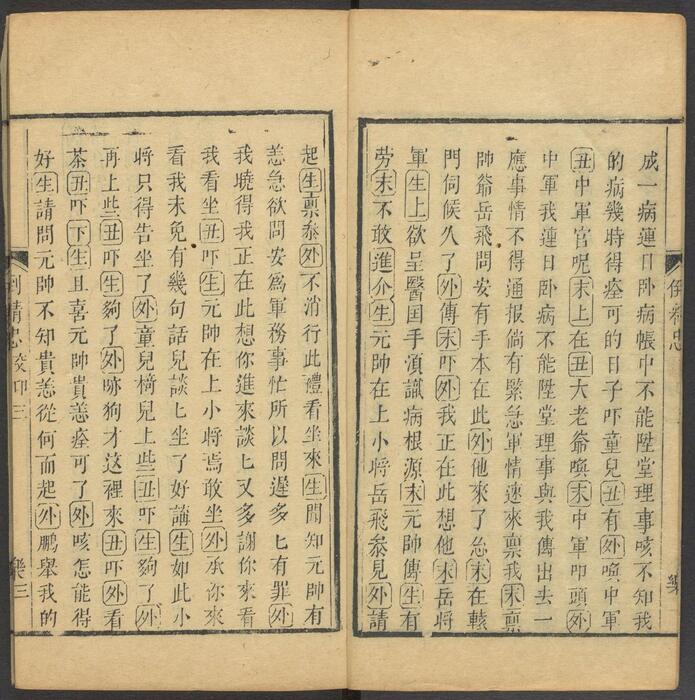 成一病連日卧病帳中不能陞堂理事咳不知我
的病幾時得痊可的日子吓童兒丑有外喚中軍
丑中軍官呢末上在丑大老爺喚末中軍叩頭外
中軍我連日卧病不能陞堂理事與我傳出去一
應事情不得通報倘有緊急軍情速來禀我末禀
帥爺岳飛問安有手本在此外他來了怎末在轅
門伺候久了外傳末吓外我正在此想他末岳將
軍生上欲呈醫国手湏識病根源末元帥傳生有
勞末不敢進介生元帥在上小將岳飛叅見外請
起生禀叅外不消行此禮看坐來生聞知元帥有
恙急欲問安爲軍務事忙所以問遲多匕有罪外
我曉得我正在此想你進來談匕又多謝你來看
我看坐丑吓生元帥在上小將焉敢坐外承你來
看我未免有幾句話兒談匕坐了好講生如此小
將只得告坐了外童兒椅兒上些丑吓生夠了外
再上些丑吓生夠了外㖿狗才这裡來丑吓外看
茶丑吓下生且喜元帥貴恙痊可了外咳怎能得
好生請問元帥不知貴恙從何而起外鵬舉我的
精忠 交印 三
樂三